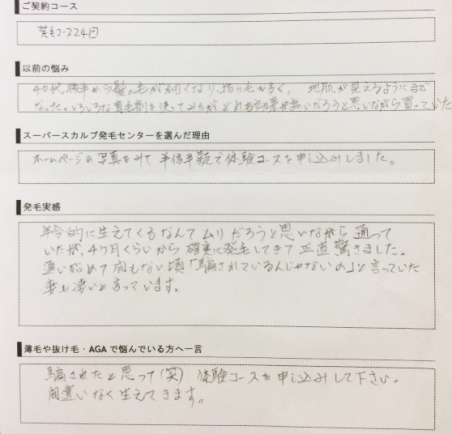 ご契約コース
発毛コース24回
以前の悩み
40代後半から髪の毛が細くなり、抜け毛も多く、地肌が見えるようにまで
なった。いろいろな育毛剤を使ってみたが、どれも効果が無いだろうと思いながら買っていた
スーパースカルプ発毛センターを選んだ理由
ホームページの写真をみて半信半疑で体験コースを申し込みしました。
発毛実感
年令的に生えてくるなんてムリだろうと思いながら通って
いたが、4ヶ月くらいから確実に発毛してきて正直驚きました。
通い始めて間もない頃「騙されているんじゃないの」と言っていた
妻も凄いと言っています。
薄毛や抜け毛・AGAで悩んでいる方へ一言
騙されたと思って(笑)体験コースを申し込みして下さい。
間違いなく生えてきます。